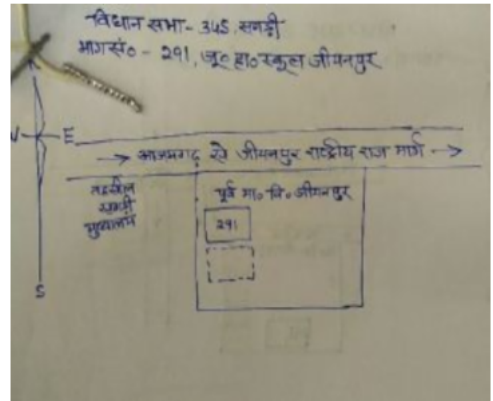 विधान सभा - 345, सगड़ी
भाग सं० - 291, जू० हा० स्कूल जीयनपुर
N
W E
→ आजमगढ़ से जीयनपुर राष्ट्रीय राज मार्ग →
तहसील
सगड़ी
मुख्यालय
पूर्व मा० वि० जीयनपुर
291
S